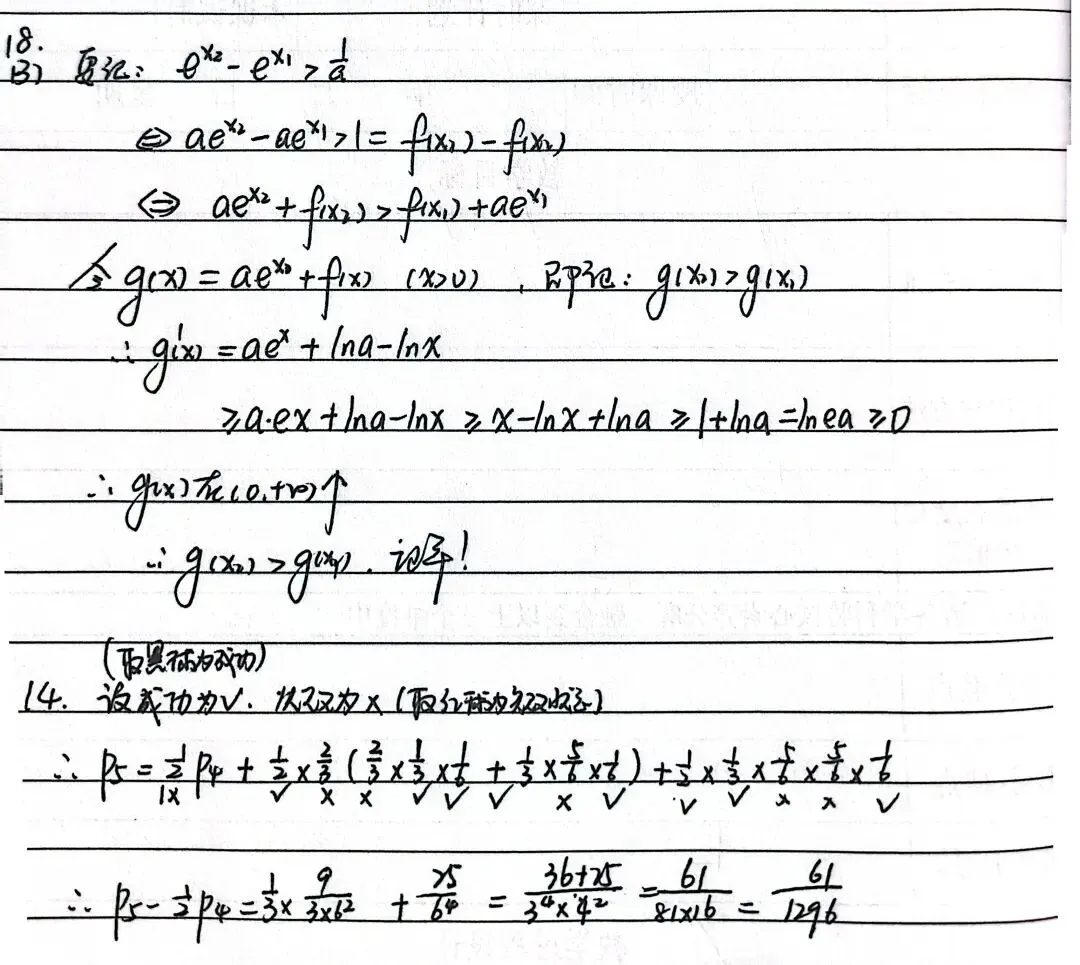 18.
(3) 要证: e^{x₂} - e^{x₁} > \frac{1}{a}
⇔ ae^{x₂} - ae^{x₁} > 1 = f(x₁) - f(x₂)
⇔ ae^{x₂} + f(x₂) > f(x₁) + ae^{x₁}
令 g(x) = ae^{x} + f(x) (x>0), 即证: g(x₂) > g(x₁)
∴ g'(x) = ae^x + lna - lnx
≥ a·ex + lna - lnx ≥ x - lnx + lna ≥ 1 + lna = lnea ≥ 0
∴ g(x) 在 (0, +∞) ↑
∴ g(x₂) > g(x₁). 证毕!
(取黑球为成功)
14. 设成功为√. 失败为× (取红球为失败)
∴ P₅ = \frac{1}{2} P₄ + \frac{1}{2} × \frac{2}{3} ( \frac{2}{3} × \frac{1}{3} × \frac{1}{6} + \frac{1}{3} × \frac{5}{6} × \frac{1}{6} ) + \frac{1}{2} × \frac{1}{3} × \frac{5}{6} × \frac{5}{6} × \frac{1}{6}
1× √ × × √ √ √ × √ √ √ × × √
∴ P₅ - \frac{1}{2} P₄ = \frac{1}{3} × \frac{9}{3×6²} + \frac{25}{6⁴} = \frac{36+25}{3⁴×4²} = \frac{61}{81×16} = \frac{61}{1296}